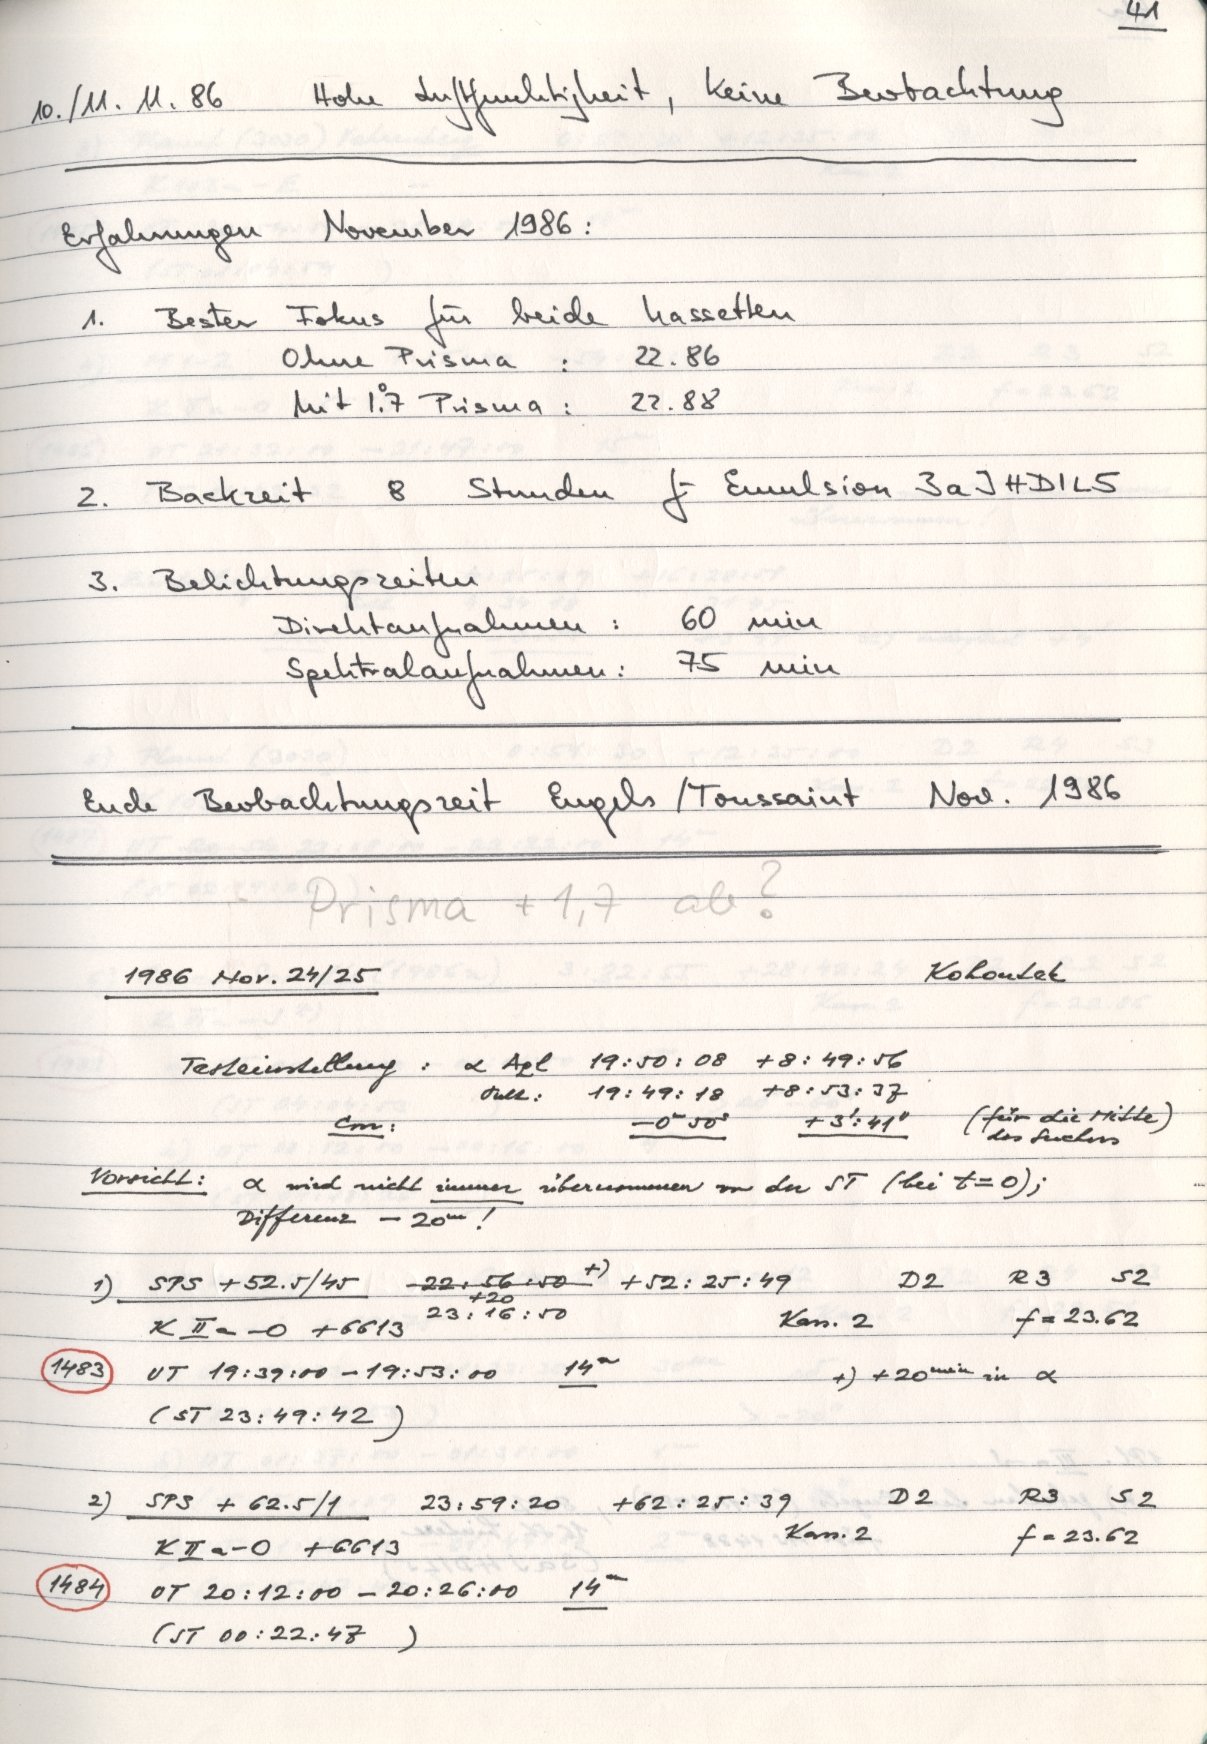 41
10./11. 11. 86 Hohe Luftfeuchtigkeit, keine Beobachtung
Erfahrungen November 1986:
1. Bester Fokus für beide Kassetten
Ohne Prisma : 22.86
Mit 1.°7 Prisma : 22.88
2. Backzeit 8 Stunden f. Emulsion 3aJHDIL5
3. Belichtungszeiten
Direktaufnahmen : 60 min
Spektralaufnahmen: 75 min
Ende Beobachtungszeit Engels/Toussaint Nov. 1986
Prisma + 1,7 ab?
1986 Nov. 24/25 Kohoutek
Testeinstellung : α Aql 19:50:08 +8:49:56
19:49:18 +8:53:37
Corr: -0ᵐ 50ˢ +3':41" (für die Mitte)
des Suchers
Vorsicht: α wird nicht immer übernommen von der ST (bei t=0);
Differenz - 20ᵐ!
1) SPS +52.5/45 22:56:50 +) +52:25:49 D2 R3 S2
+20
23:16:50
K IIa-O +6613 Kass. 2 f=23.62
1483 UT 19:39:00 - 19:53:00 14ᵐ +) +20ᵐⁱⁿ in α
(ST 23:49:42 )
2) SPS + 62.5/1 23:59:20 +62:25:39 D2 R3 S2
K IIa-O +6613 Kass. 2 f=23.62
1484 UT 20:12:00 - 20:26:00 14ᵐ
(ST 00:22:47 )